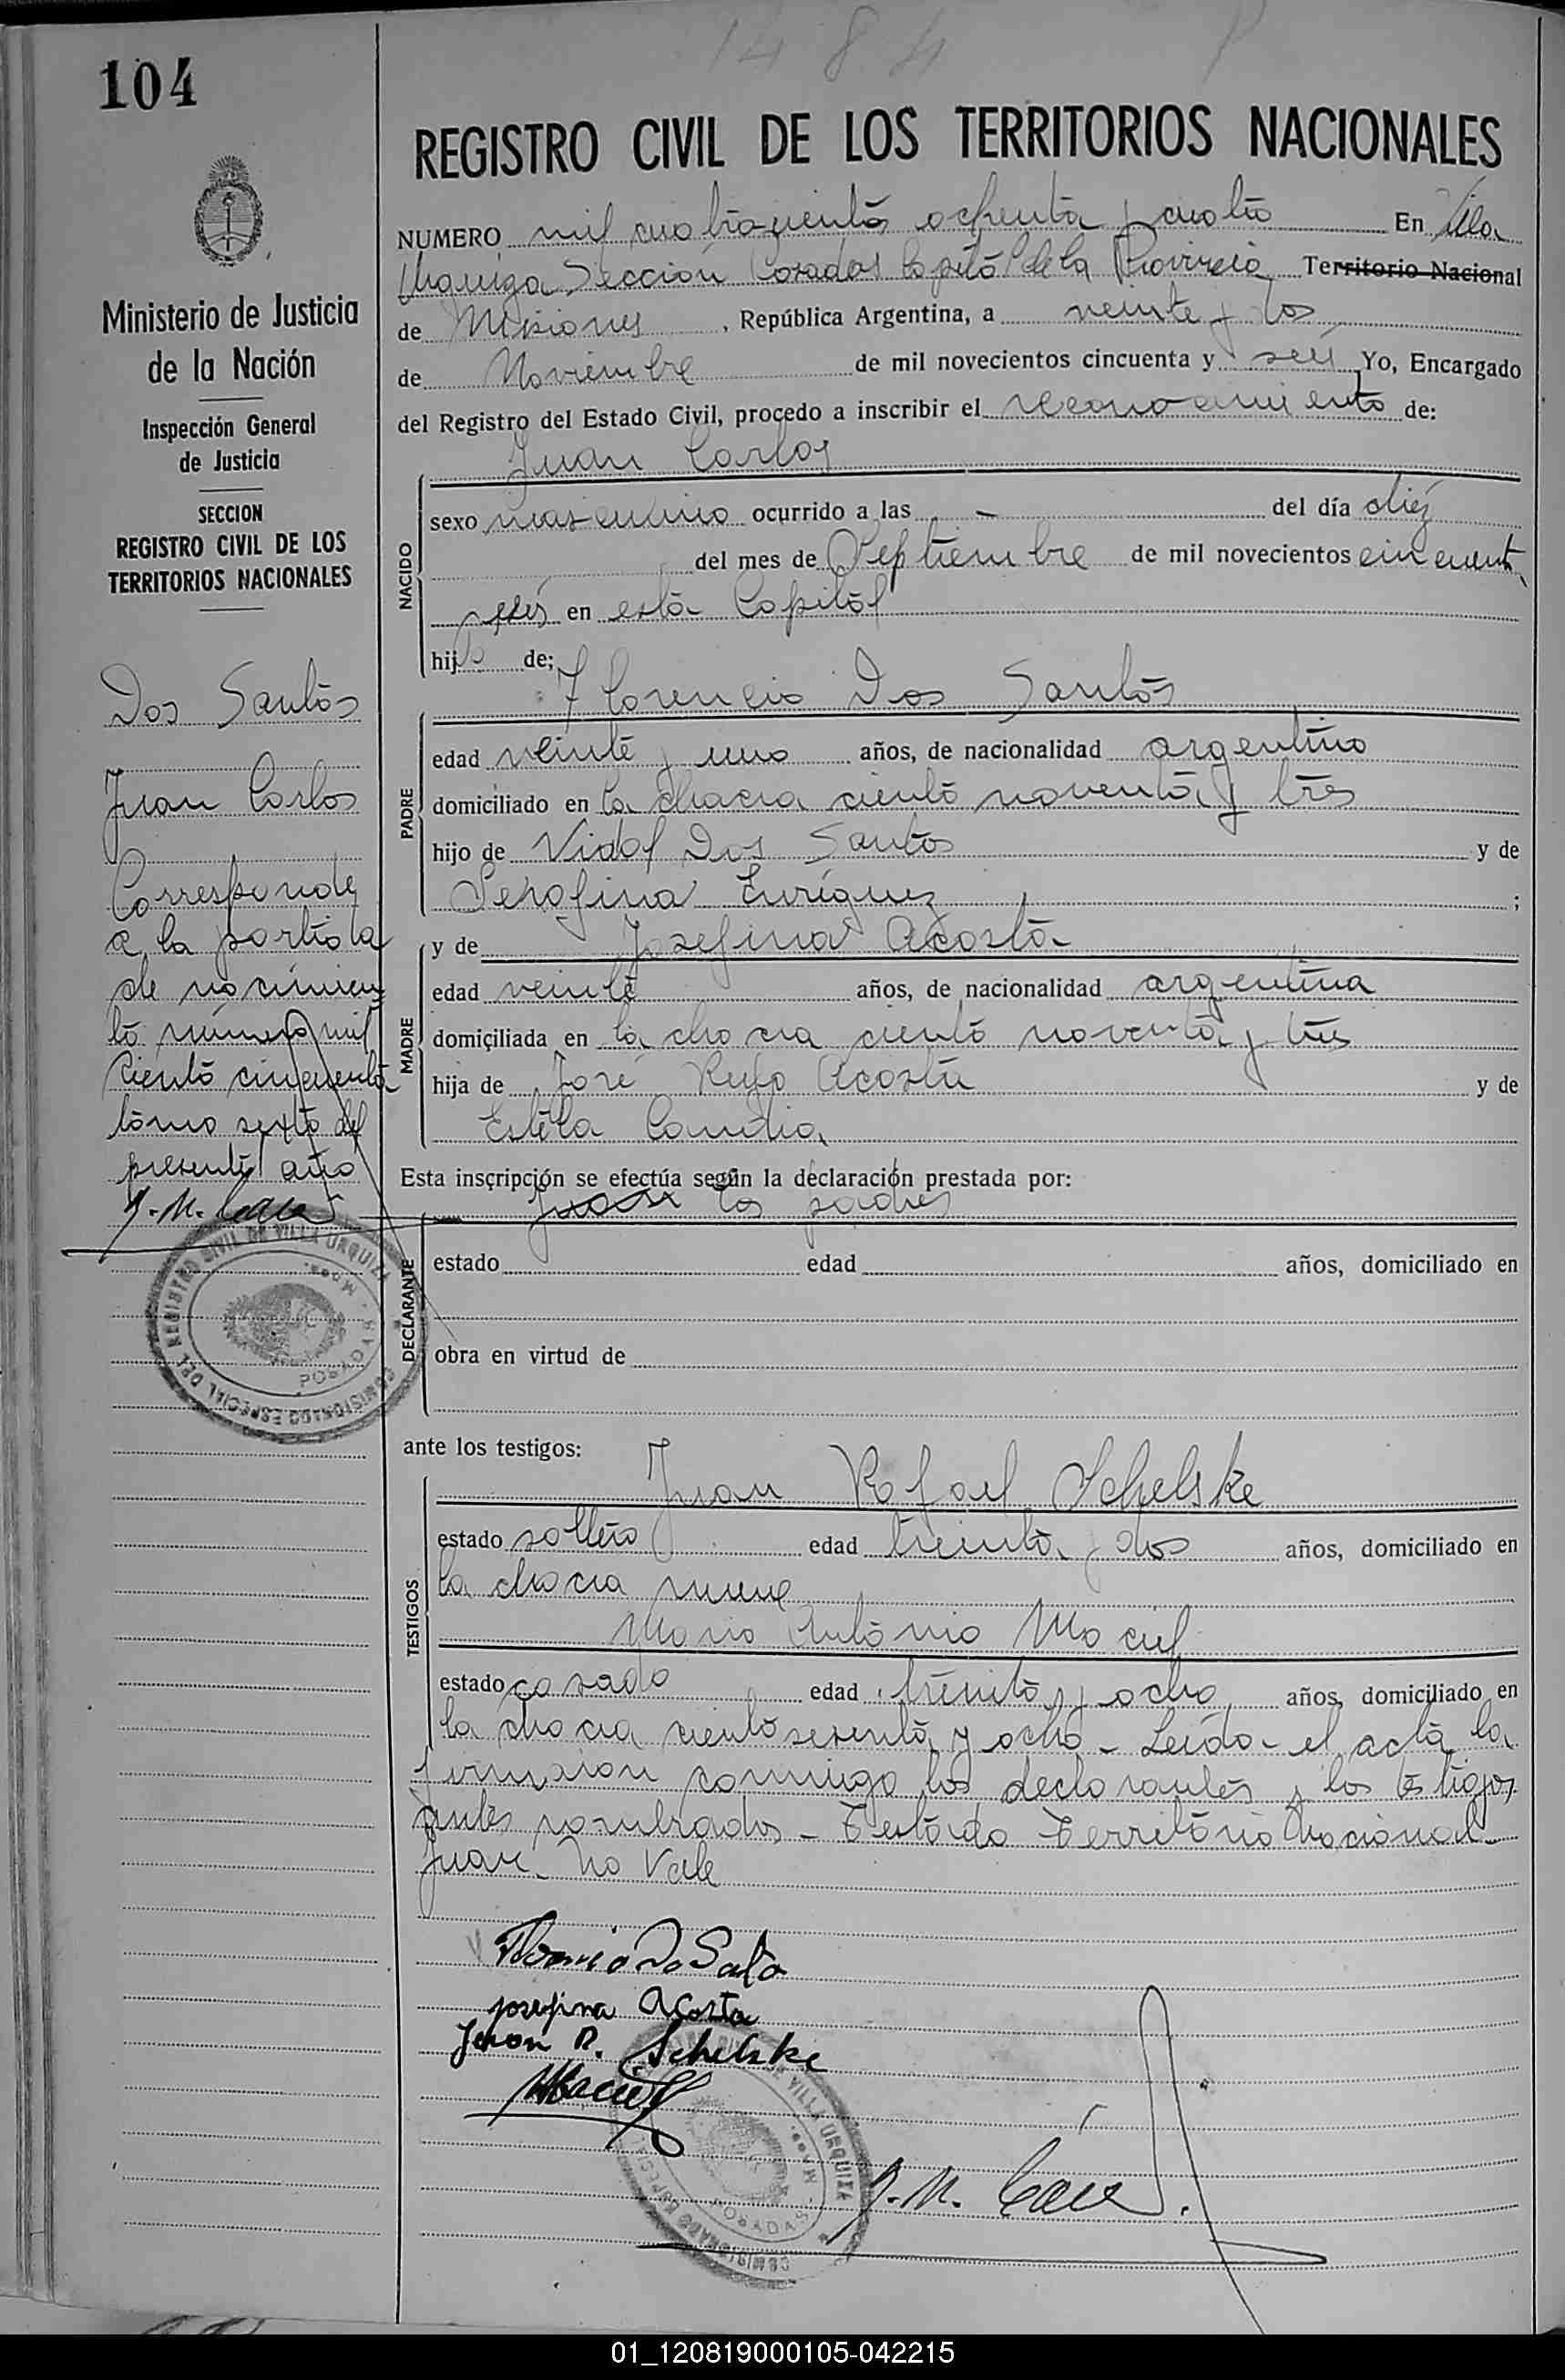 1484
104
REGISTRO CIVIL DE LOS TERRITORIOS NACIONALES
NUMERO mil cuatrocientos ochenta y cuatro En Villa
Urquiza Sección Posadas Capital de la Provincia Territorio Nacional
de Misiones, República Argentina, a veinte y dos
de Noviembre de mil novecientos cincuenta y seis Yo, Encargado
del Registro del Estado Civil, procedo a inscribir el reconocimiento de:
Juan Carlos
NACIDO
sexo masculino ocurrido a las - del día diéz
del mes de Septiembre de mil novecientos cincuenta
y seis en esta Capital
hijo de;
Florencio Dos Santos
PADRE
edad veinte y uno años, de nacionalidad argentino
domiciliado en la chacra ciento noventa y tres
hijo de Vidal Dos Santos y de
Serafina Enríquez ;
y de Josefina Acosta
MADRE
edad veinte años, de nacionalidad argentina
domiciliada en la chacra ciento noventa y tres
hija de José Rufo Acosta y de
Estela
Esta inscripción se efectúa según la declaración prestada por:
Juan los padres
DECLARANTE
estado edad años, domiciliado en
obra en virtud de
ante los testigos:
Juan Rafael Schelske
TESTIGOS
estado soltero edad treinta y dos años, domiciliado en
la chacra nueve
Mario Antonio Maciel
estado casado edad treinta y ocho años, domiciliado en
la chacra ciento sesenta y ocho - Leída el acta la
firmaron conmigo los declarantes y los testigos
antes nombrados - Testado Territorio Nacional
Juan - No Vale
Florencio Do Santo
Josefina Acosta
Juan R. Schelske
MMaciel
Ministerio de Justicia
de la Nación
Inspección General
de Justicia
SECCION
REGISTRO CIVIL DE LOS
TERRITORIOS NACIONALES
Dos Santos
Juan Carlos
Corresponde
a la partida
de nacimien
to número mil
ciento cincuenta
tomo sexto del
presente año
COMISIONADO ESPECIAL DEL REGISTRO CIVIL DE VILLA URQUIZA
POSADAS - Mnes.
VILLA URQUIZA
POSADAS - Mnes.
COMISIONADO ESPECIAL
01_120819000105-042215